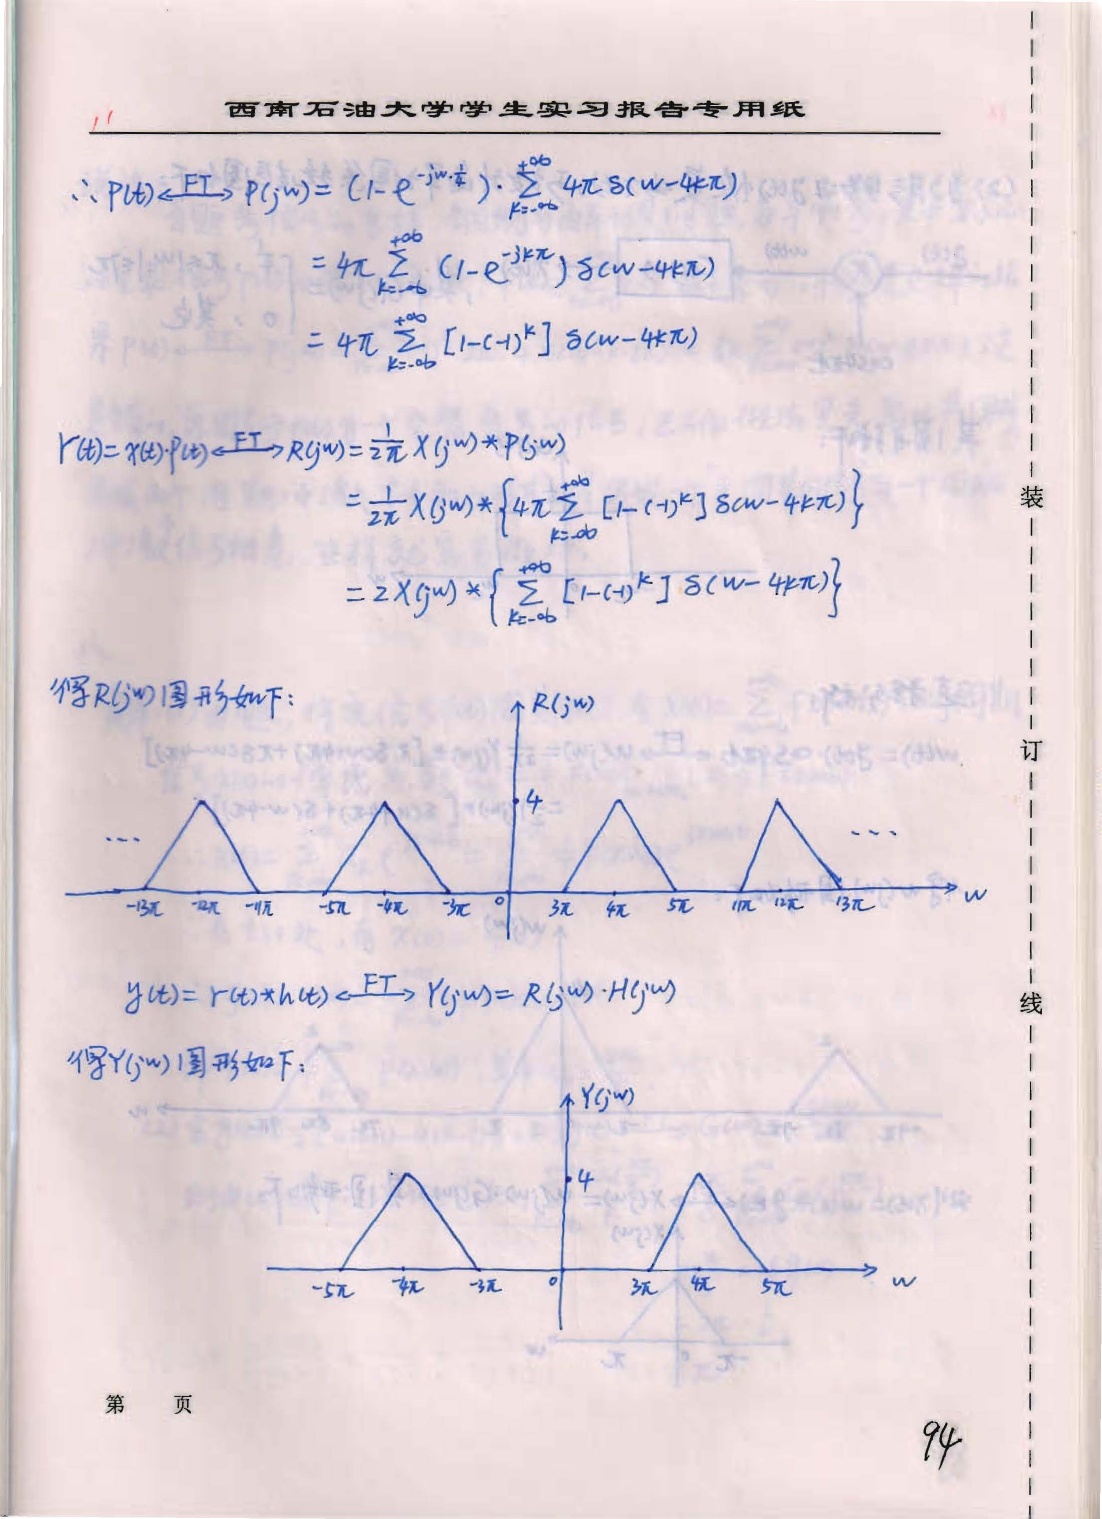 西南石油大学学生实习报告专用纸
∴ P(t) ←FT→ P(jw) = (1-e^{-jw·1/4})· Σ_{k=-∞}^{+∞} 4π δ(w-4kπ)
= 4π Σ_{k=-∞}^{+∞} (1-e^{-jkπ}) δ(w-4kπ)
= 4π Σ_{k=-∞}^{+∞} [1-(-1)^k] δ(w-4kπ)
r(t)= x(t)·p(t) ←FT→ R(jw)= 1/2π X(jw) * P(jw)
= 1/2π X(jw) * {4π Σ_{k=-∞}^{+∞} [1-(-1)^k] δ(w-4kπ)}
= 2X(jw) * { Σ_{k=-∞}^{+∞} [1-(-1)^k] δ(w-4kπ)}
得R(jw)图形如下:
R(jw)
4
... ...
-13π -12π -11π -5π -4π -3π 0 3π 4π 5π 11π 12π 13π w
y(t)= r(t)*h(t) ←FT→ Y(jw)= R(jw)·H(jw)
得Y(jw)图形如下:
Y(jw)
4
-5π -4π -3π 0 3π 4π 5π w
第 页
94
装
订
线